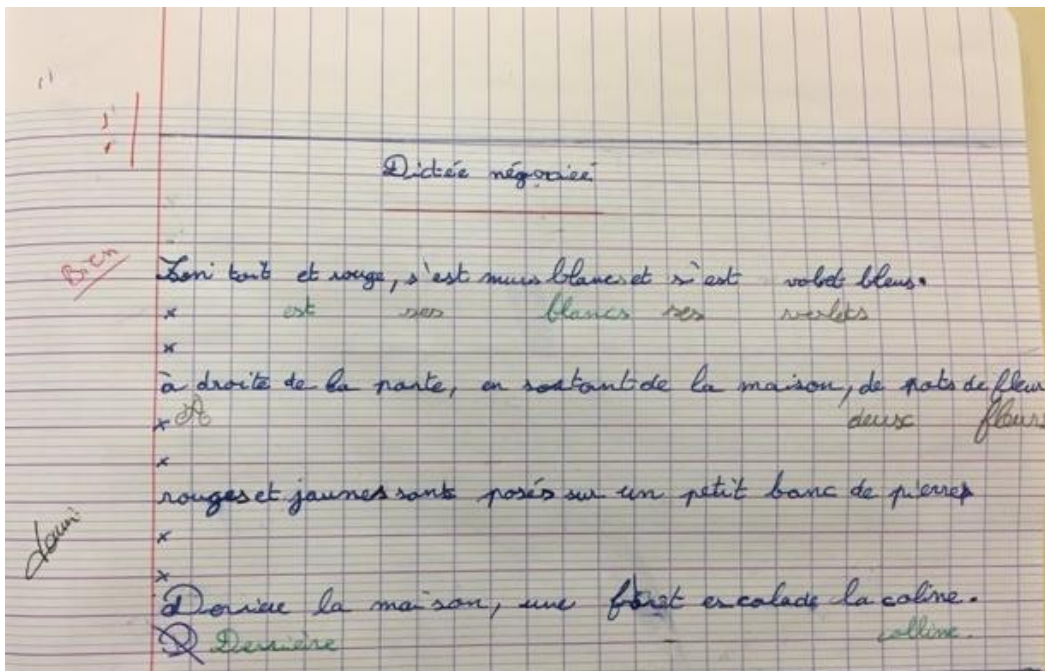 Dictée négociée
Bien
Son toit et rouge, s'est murs blanc et s'est volet bleus.
est ses blancs ses volets
à droite de la porte, en sortant de la maison, de pots de fleur
A deux fleurs
rouges et jaunes sont posés sur un petit banc de pierres
Deriere la maison, une forêt escalade la coline.
D Derrière colline.